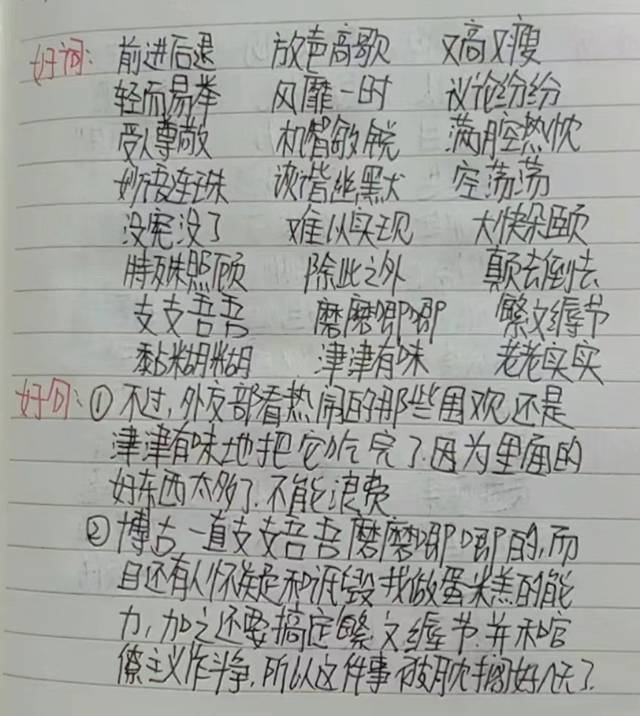 好词: 前进后退 放声高歌 又高又瘦
轻而易举 风靡一时 议论纷纷
受人尊敬 机智敏锐 满腔热忱
妙语连珠 诙谐幽默 空荡荡
没完没了 难以实现 大快朵颐
特殊照顾 除此之外 颠去倒去
支支吾吾 磨磨唧唧 繁文缛节
黏糊糊 津津有味 老老实实
好句: ① 不过, 外交部看热闹的那些围观还是
津津有味地把它吃完了.因为里面的
好东西太多了.不能浪费
② 博古一直支支吾吾磨磨唧唧的,而
且还有人怀疑和诋毁我做蛋糕的能
力, 加之还要搞定繁文缛节.并和官
僚主义作斗争, 所以这件事被耽搁好几天了.